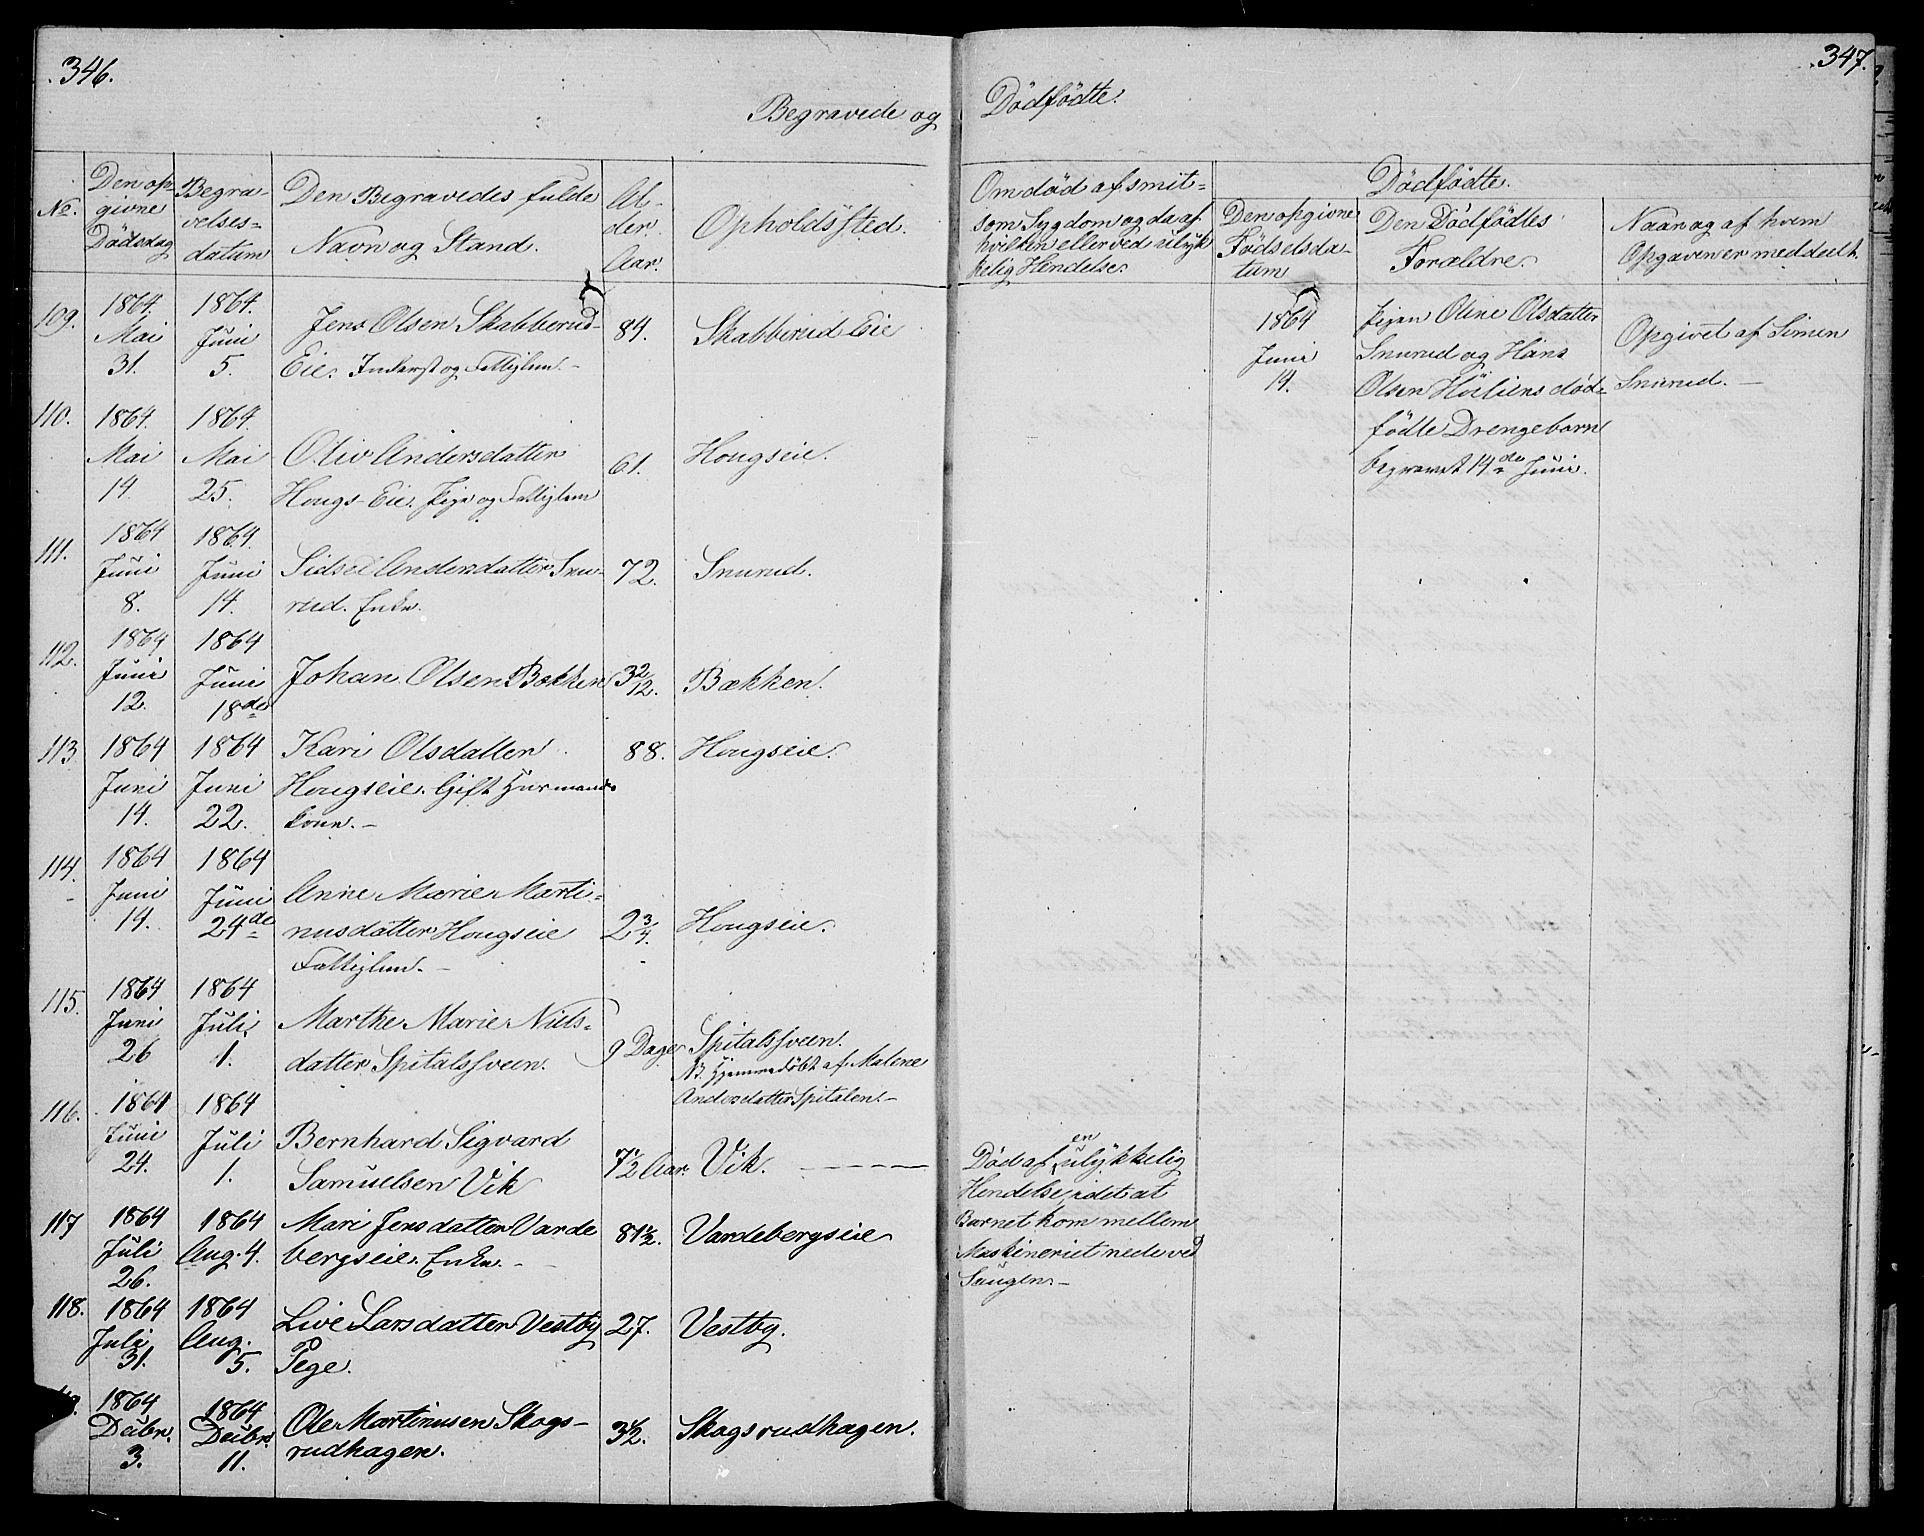 346.
Begravede og
No.
Den op-
givne
Dødsdag
Begra-
velses-
datum
Den Begravedes fulde
Navn og Stand.
Al-
der.
Aar.
Opholdssted.
109.
1864.
Mai
31.
1864.
Juni
5.
Jens Olsen Skabberud-
Eie. Inderst og Fattiglem. -
84.
Skabberud Eie
110.
1864.
Mai
14.
1864.
Mai
25.
Oliv Andersdatter
Hougs-Eie. Pige og Fattiglem
61.
Hougseie.
111.
1864
Juni
8.
1864.
Juni
14.
Sidsel Andersdatter Snu-
rud. Enke.
72.
Snurud.
112.
1864
Juni
12.
1864
Juni
18de
Johan Olsen Bækken
3 2/12.
Bækken.
113.
1864
Juni
14.
1864
Juni
22.
Kari Olsdatter
Hougseie. Gift Huusmands
kone. -
88.
Hougseie.
114.
1864
Juni
14.
1864
Juni
24de
Anne Marie Marti-
nusdatter Hougseie
Fattiglem. -
2 3/4.
Hougseie.
115.
1864
Juni
26
1864
Juli
1.
Marthe Marie Niels-
datter Spitalssveen.
9 Dage
Spitalssveen.
NB. Hjemmedøbt af Malene
Andersdatter Spitalen. -
116.
1864
Juni
24.
1864
Juli
1.
Bernhard Sigvard
Samuelsen Vik
7 1/2 Aar.
Vik.
117
1864
Juli
26.
1864
Aug. 4.
Mari Jensdatter Varde
bergseie. Enke. -
81 1/2.
Vardebergseie
118.
1864
Juli
31.
1864
Aug.
5.
Live Larsdatter Vestby
Pege.
27.
Vestby.
1864
Decbr.
3.
1864
Decbr.
11.
Ole Martinusen Skogs-
rudhagen.
3 1/2.
Skogsrudhagen.
347.
Dødfødte.
Om død af smit-
som Sygdom og da af
hvilken eller ved ulyk
kelig Hendelse.
Dødfødte.
Den opgivne
Fødselsda-
tum
Den Dødfødtes
Forældre.
Naar og af hvem
Opgaven er meddeelt.
1864
Juni
14.
Pigen Oline Olsdatter
Snurud og Hans
Olsen Høiliens død-
fødte Drengebarn
begravet 14de Juni.
Opgivet af Simen
Snurud. -
Død af en ulykkelig
Hendelse, idet at
Barnet kom mellem
Maskineriet nede ved
Saugen. -